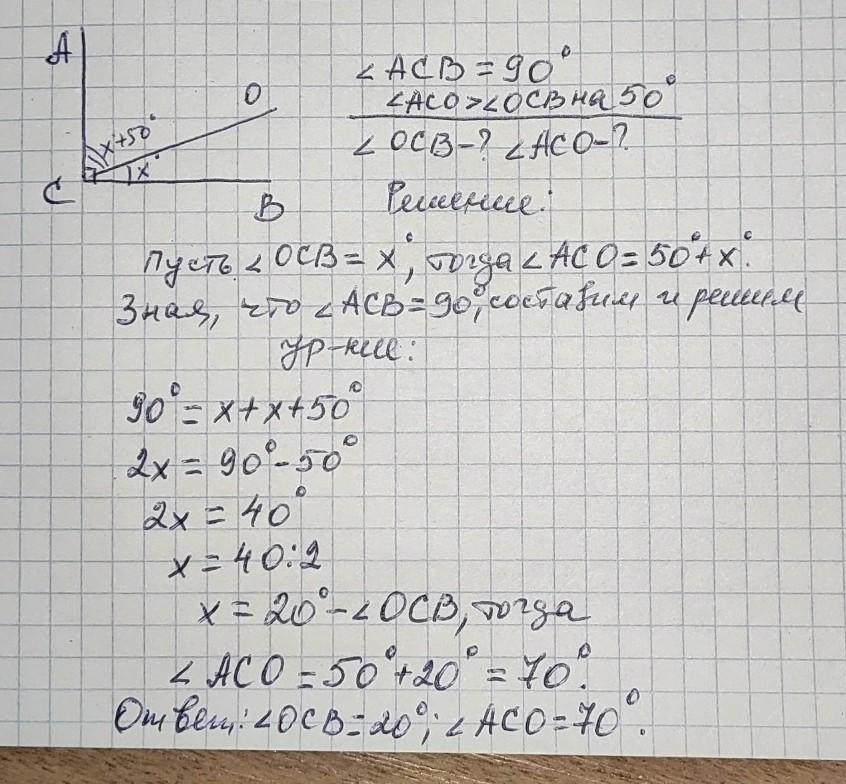 A
O
x+50°
x°
C
B
∠ACB=90°
∠ACO>∠OCB на 50°
∠OCB-? ∠ACO-?
Решение:
Пусть ∠OCB=x°, тогда ∠ACO=50°+x°.
Зная, что ∠ACB=90°, составим и решим
ур-ние:
90°=x+x+50°
2x=90°-50°
2x=40°
x=40:2
x=20°-∠OCB, тогда
∠ACO=50°+20°=70°.
Ответ: ∠OCB=20°; ∠ACO=70°.